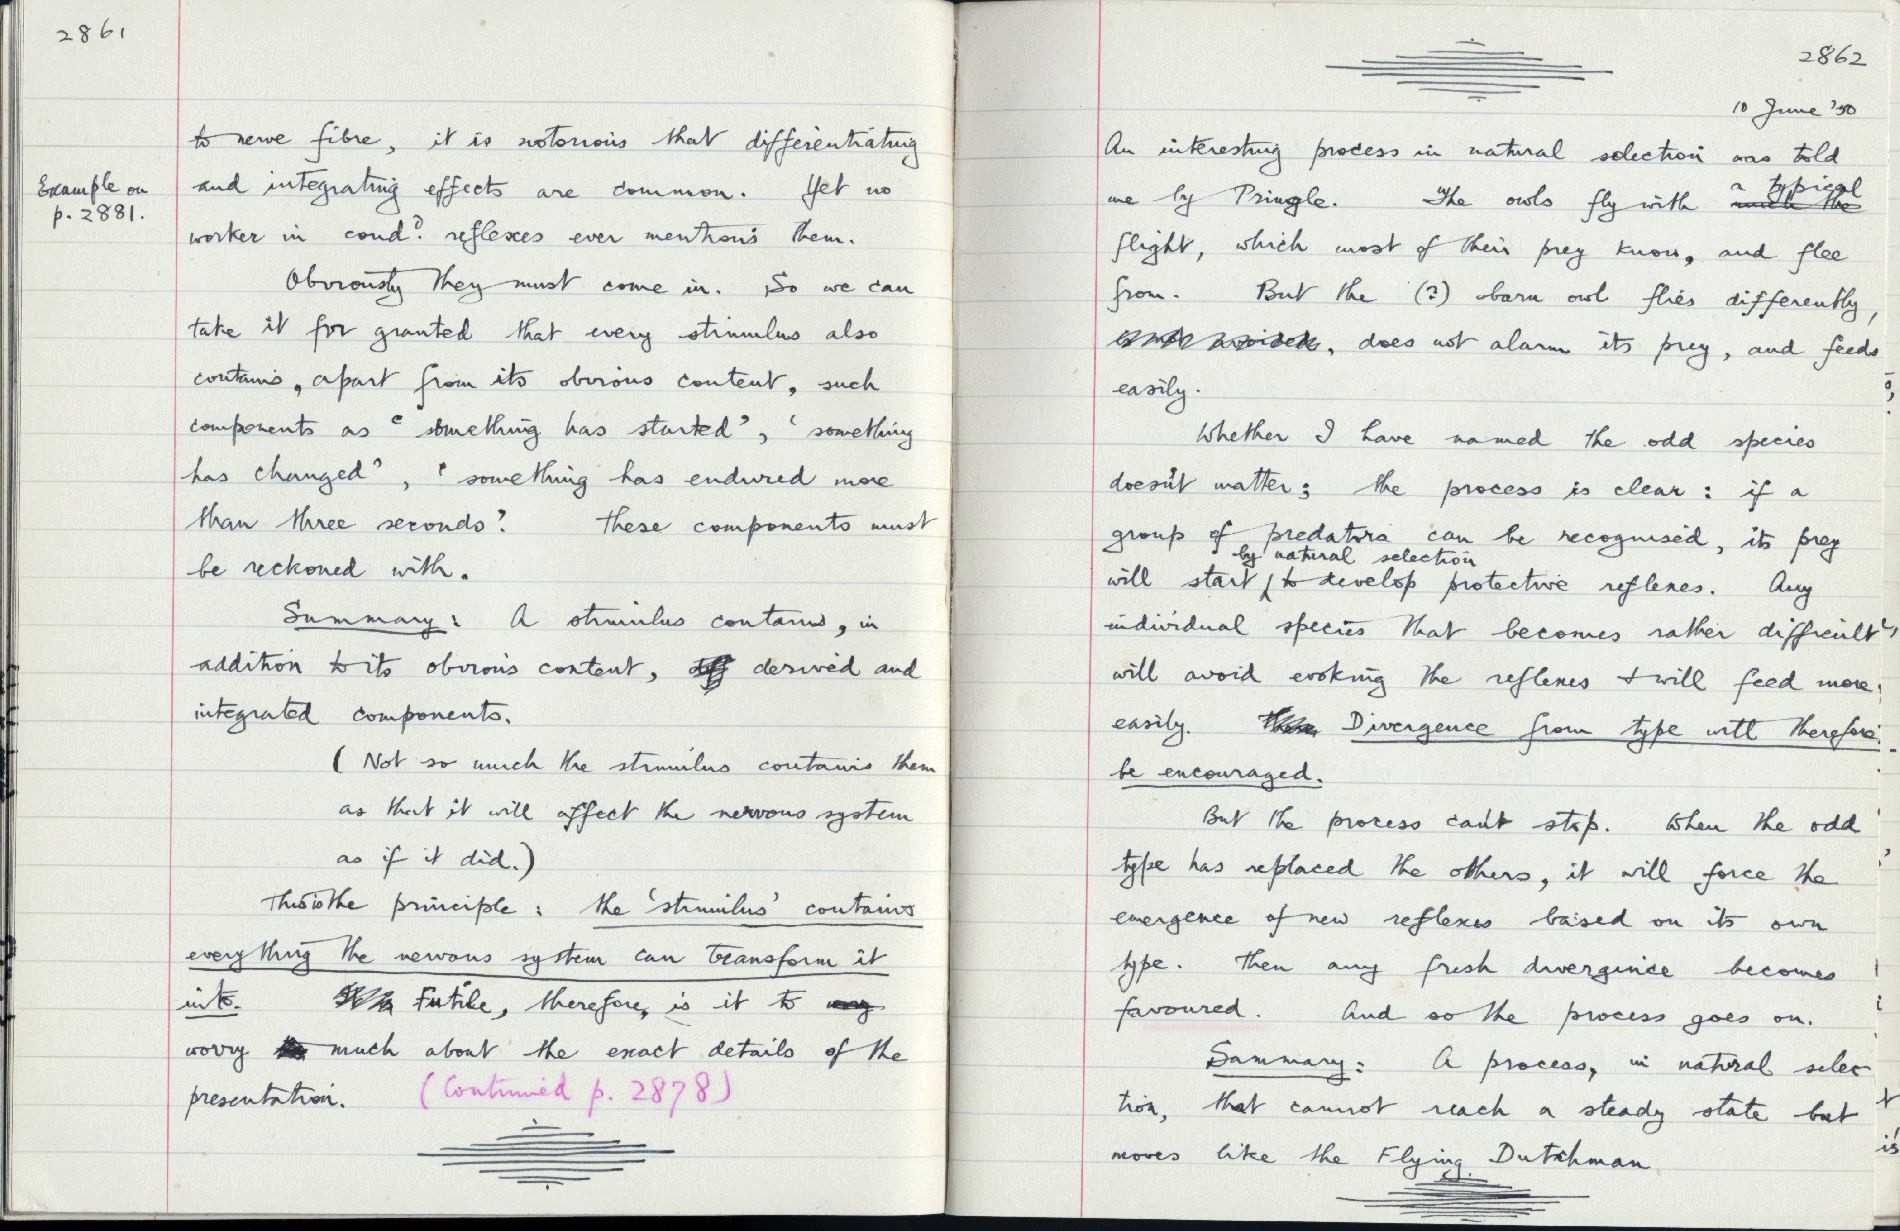 2861
to nerve fibre, it is notorious that differentiating
Example on
p. 2881.
and integrating effects are common. Yet no
worker in cond? reflexes ever mentions them.
Obviously they must come in. So we can
take it for granted that every stimulus also
contains, apart from its obvious content, such
components as 'something has started', 'something
has changed', 'something has endured more
than three seconds'. These components must
be reckoned with.
Summary: A stimulus contains, in
addition to its obvious content, derived and
integrated components.
(Not so much the stimulus contains them
as that it will affect the nervous system
as if it did.)
This is the principle: the 'stimulus' contains
everything the nervous system can transform it
into. Futile, therefore, is it to
worry much about the exact details of the
presentation. (Continued p. 2878)
2862
10 June '50
An interesting process in natural selection was told
me by Pringle. The owls fly with a typical
flight, which most of their prey know, and flee
from. But the (?) barn owl flies differently,
does not alarm its prey, and feeds
easily.
Whether I have named the odd species
doesn't matter; the process is clear: if a
group of predators can be recognised, its prey
will start by natural selection to develop protective reflexes. Any
individual species that becomes rather different
will avoid evoking the reflexes & will feed more
easily. Divergence from type will therefore
be encouraged.
But the process can't stop. When the odd
type has replaced the others, it will force the
emergence of new reflexes based on its own
type. Then any fresh divergence becomes
favoured. And so the process goes on.
Summary: A process, in natural selec-
tion, that cannot reach a steady state but
moves like the Flying Dutchman